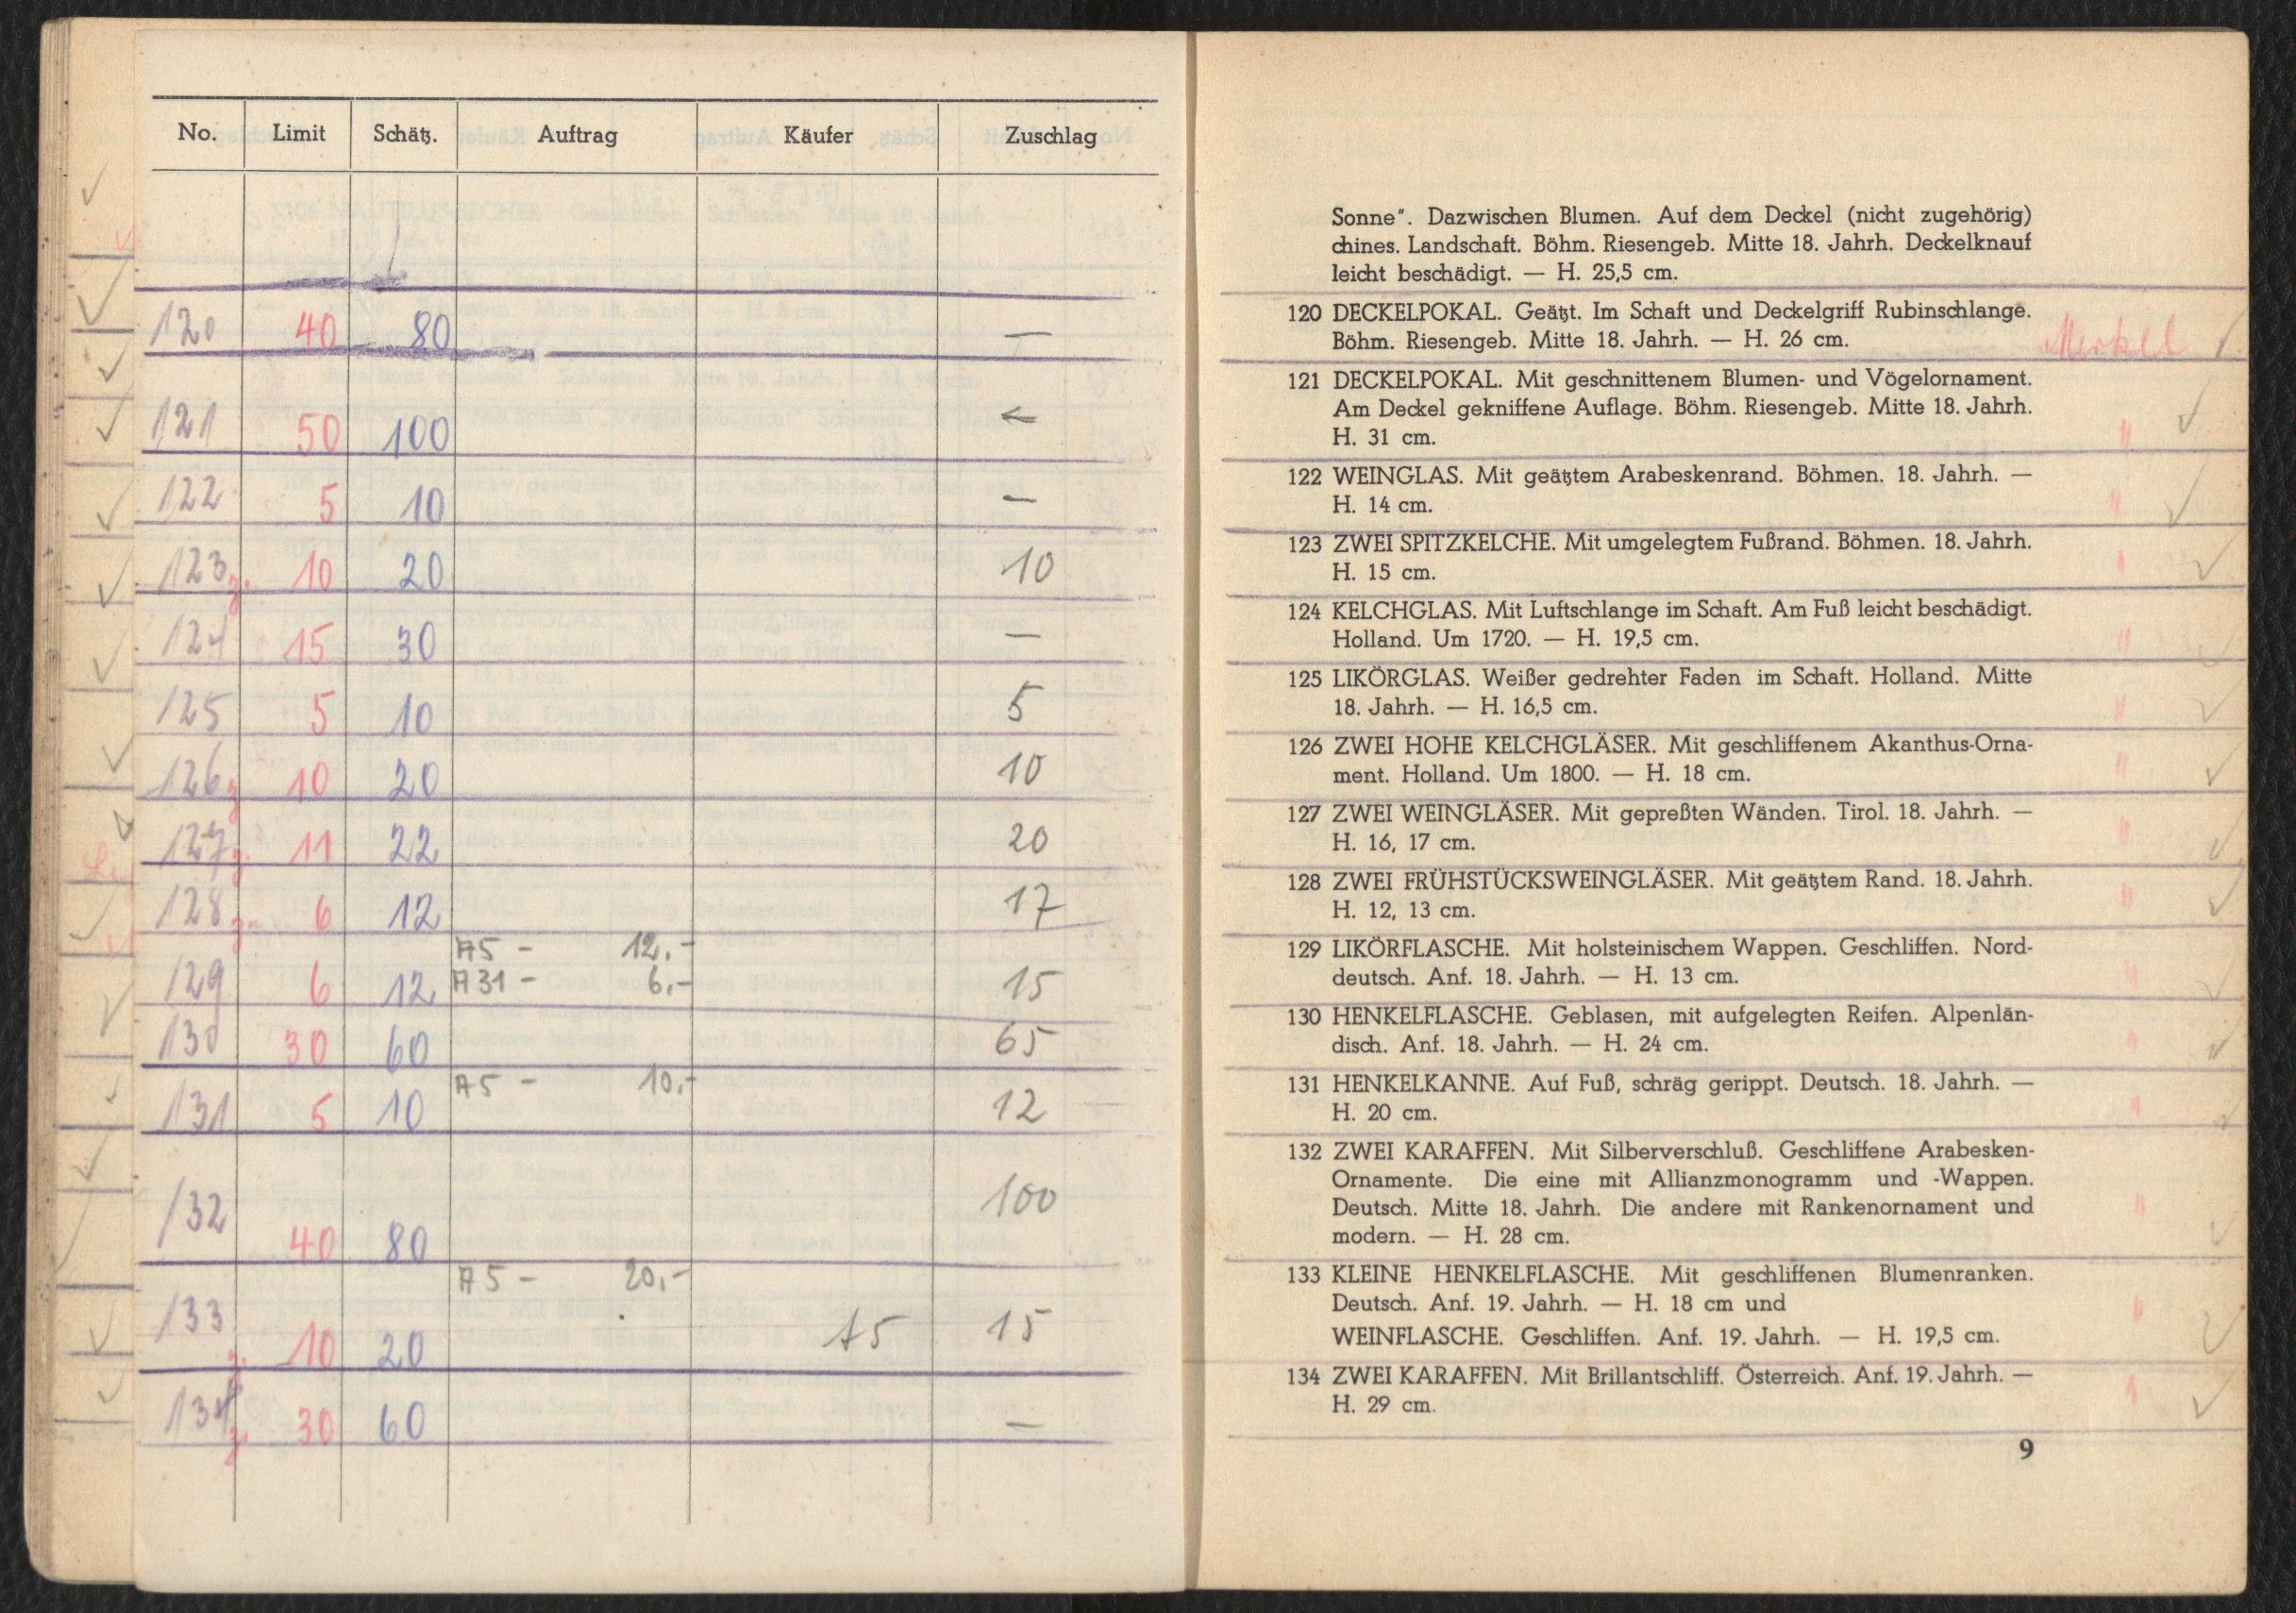 No. Limit Schätz. Auftrag Käufer Zuschlag
120 40 80 —
121 50 100 —
122 5 10 —
123 z. 10 20 10
124 15 30 —
125 5 10 5
126 z 10 20 10
127 z. 11 22 20
128 z. 6 12 17
A5 - 12,-
129 6 12 A31 - 6,- 15
130 30 60 65
A5 - 10,-
131 5 10 12
132 40 80 100
A5 - 20,-
133 z. 10 20 A5 15
134 z. 30 60 —
Sonne". Dazwischen Blumen. Auf dem Deckel (nicht zugehörig)
chines. Landschaft. Böhm. Riesengeb. Mitte 18. Jahrh. Deckelknauf
leicht beschädigt. — H. 25,5 cm.
120 DECKELPOKAL. Geätzt. Im Schaft und Deckelgriff Rubinschlange.
Böhm. Riesengeb. Mitte 18. Jahrh. — H. 26 cm. Merkel
121 DECKELPOKAL. Mit geschnittenem Blumen- und Vögelornament.
Am Deckel gekniffene Auflage. Böhm. Riesengeb. Mitte 18. Jahrh.
H. 31 cm. "
122 WEINGLAS. Mit geätztem Arabeskenrand. Böhmen. 18. Jahrh. —
H. 14 cm. "
123 ZWEI SPITZKELCHE. Mit umgelegtem Fußrand. Böhmen. 18. Jahrh.
H. 15 cm. "
124 KELCHGLAS. Mit Luftschlange im Schaft. Am Fuß leicht beschädigt.
Holland. Um 1720. — H. 19,5 cm. "
125 LIKÖRGLAS. Weißer gedrehter Faden im Schaft. Holland. Mitte
18. Jahrh. — H. 16,5 cm. "
126 ZWEI HOHE KELCHGLÄSER. Mit geschliffenem Akanthus-Orna-
ment. Holland. Um 1800. — H. 18 cm. "
127 ZWEI WEINGLÄSER. Mit gepreßten Wänden. Tirol. 18. Jahrh. —
H. 16, 17 cm. "
128 ZWEI FRÜHSTÜCKSWEINGLÄSER. Mit geätztem Rand. 18. Jahrh.
H. 12, 13 cm. "
129 LIKÖRFLASCHE. Mit holsteinischem Wappen. Geschliffen. Nord-
deutsch. Anf. 18. Jahrh. — H. 13 cm. "
130 HENKELFLASCHE. Geblasen, mit aufgelegten Reifen. Alpenlän-
disch. Anf. 18. Jahrh. — H. 24 cm. "
131 HENKELKANNE. Auf Fuß, schräg gerippt. Deutsch. 18. Jahrh. —
H. 20 cm. "
132 ZWEI KARAFFEN. Mit Silberverschluß. Geschliffene Arabesken-
Ornamente. Die eine mit Allianzmonogramm und -Wappen.
Deutsch. Mitte 18. Jahrh. Die andere mit Rankenornament und "
modern. — H. 28 cm.
133 KLEINE HENKELFLASCHE. Mit geschliffenen Blumenranken.
Deutsch. Anf. 19. Jahrh. — H. 18 cm und "
WEINFLASCHE. Geschliffen. Anf. 19. Jahrh. — H. 19,5 cm.
134 ZWEI KARAFFEN. Mit Brillantschliff. Österreich. Anf. 19. Jahrh. — "
H. 29 cm.
9